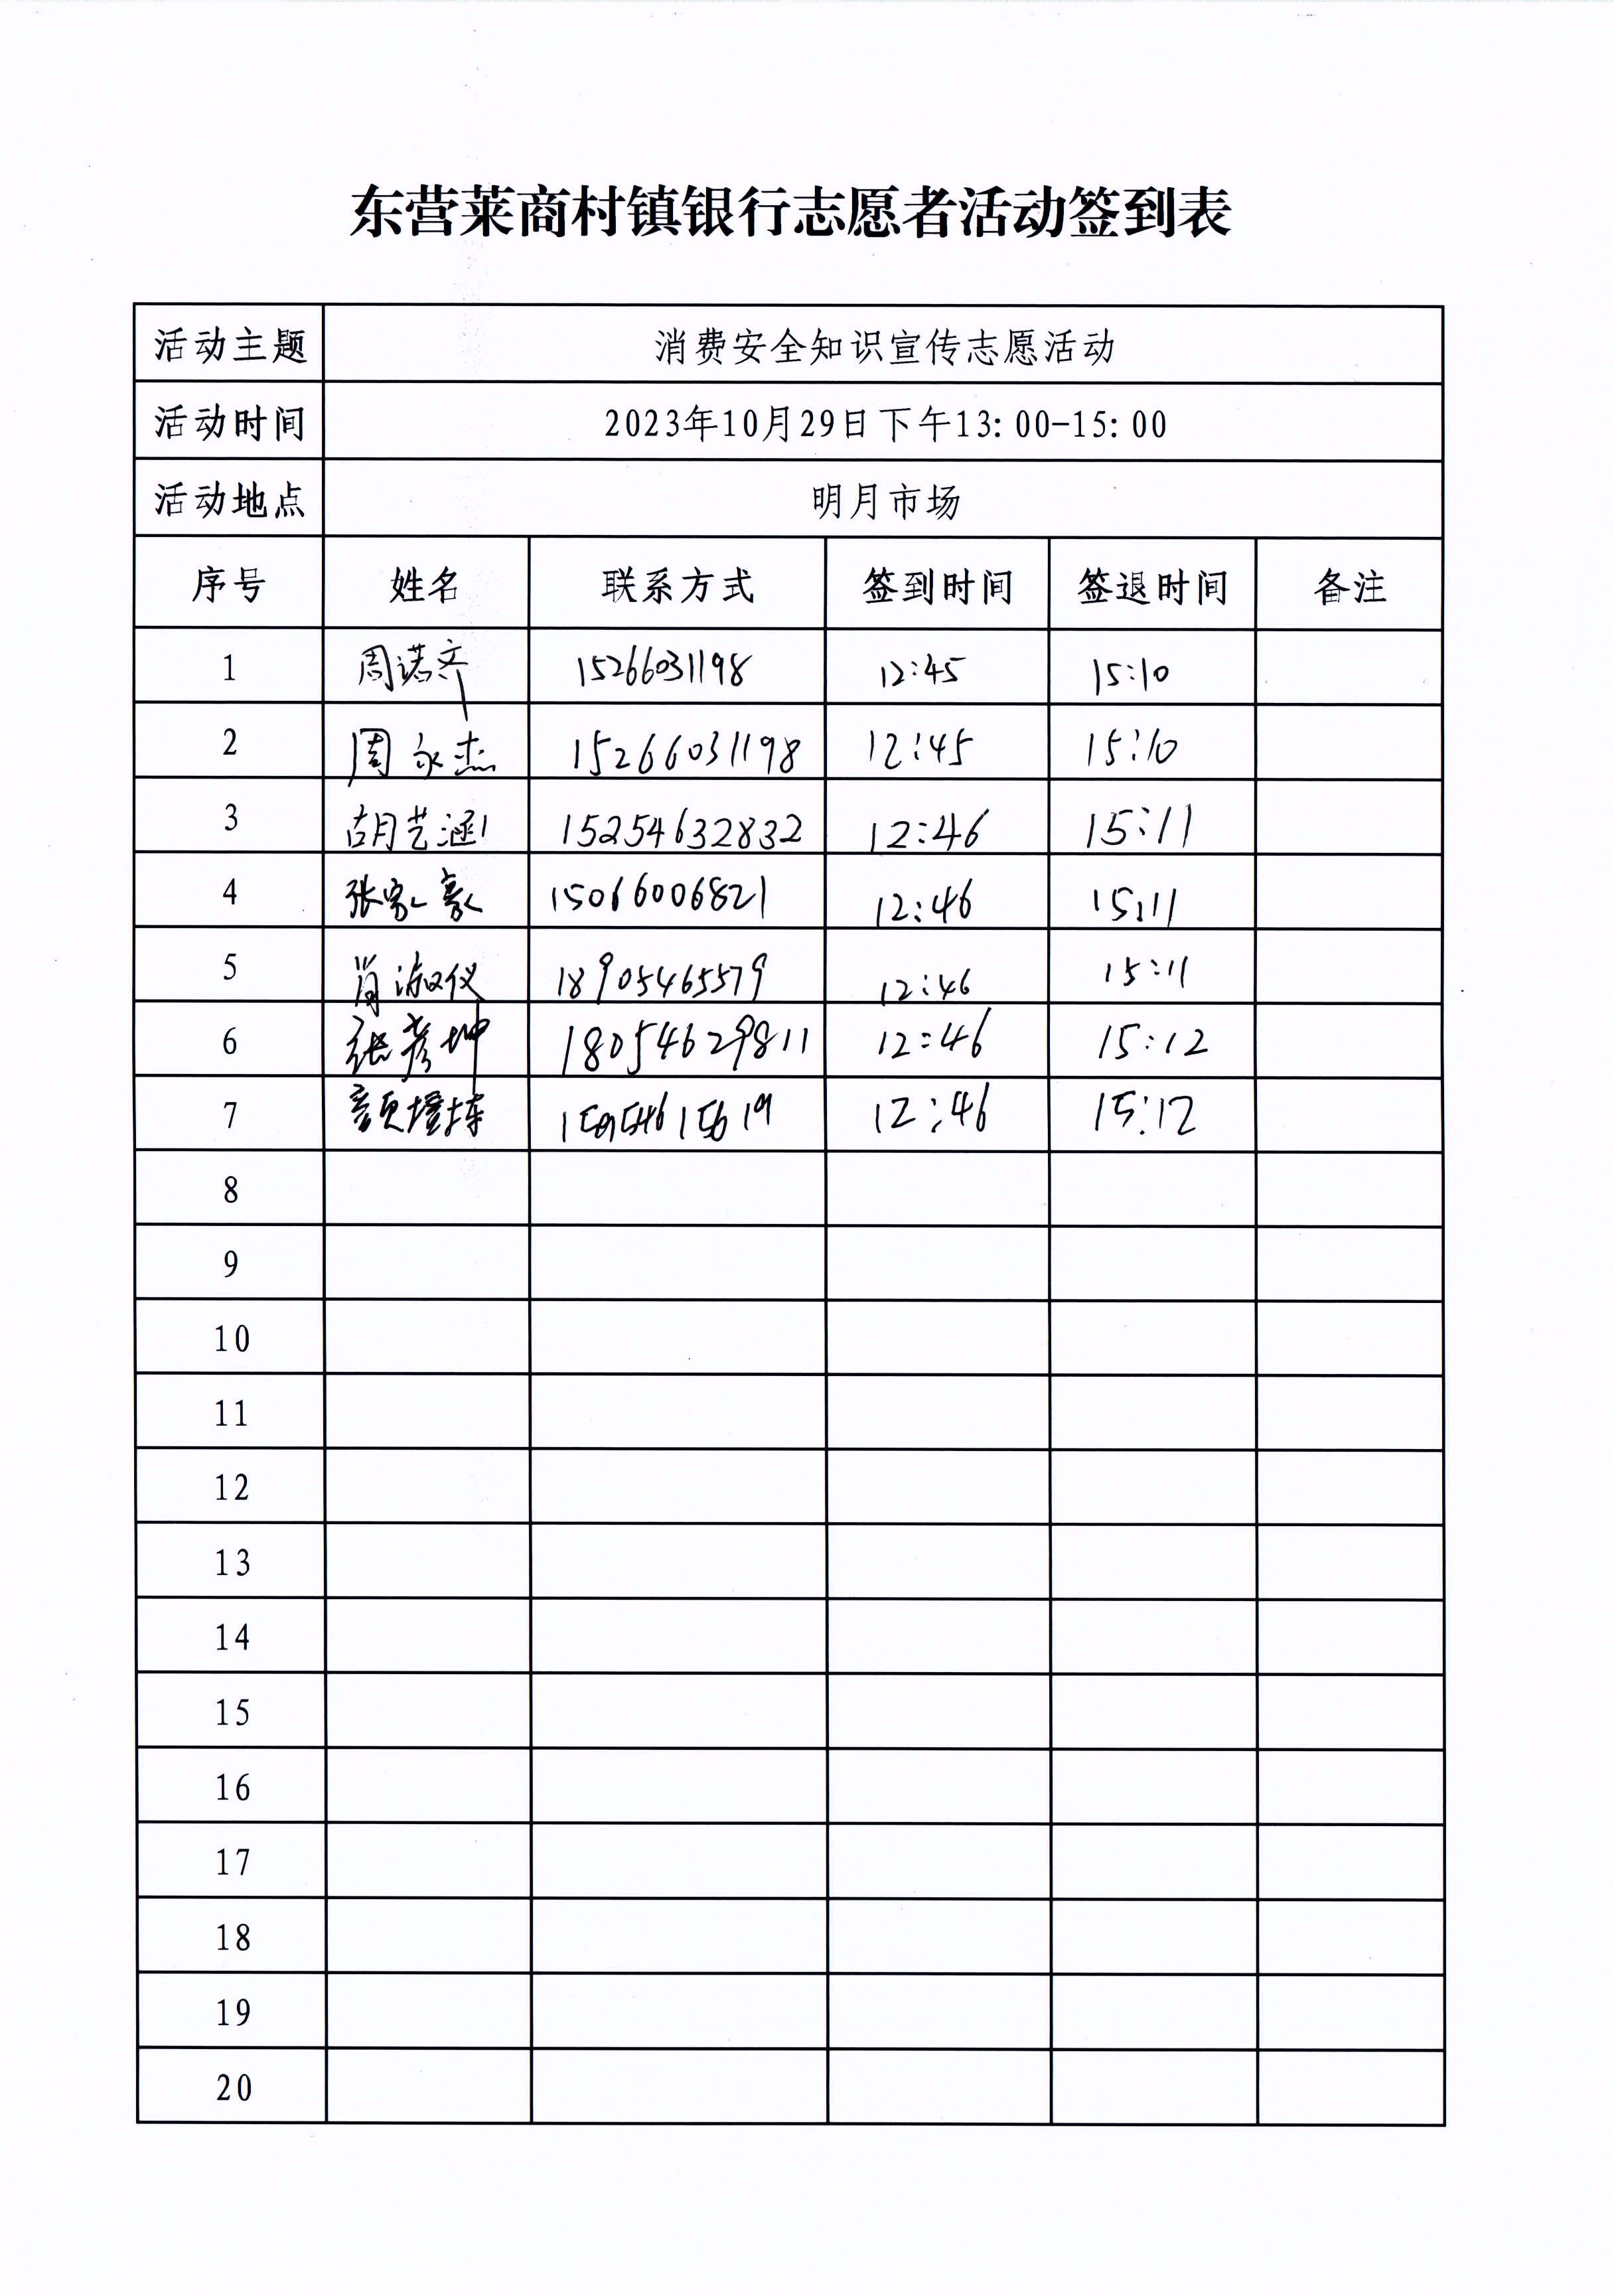 东营莱商村镇银行志愿者活动签到表
活动主题 消费安全知识宣传志愿活动
活动时间 2023年10月29日下午13:00-15:00
活动地点 明月市场
序号 姓名 联系方式 签到时间 签退时间 备注
1 周诺齐 15266031198 12:45 15:10
2 周永杰 15266031198 12:45 15:10
3 胡艺涵 15254632832 12:46 15:11
4 张家豪 15066006821 12:46 15:11
5 肖淑仪 18905465579 12:46 15:11
6 张彦坤 18054629811 12:46 15:12
7 颜 12:46 15:12
8
9
10
11
12
13
14
15
16
17
18
19
20